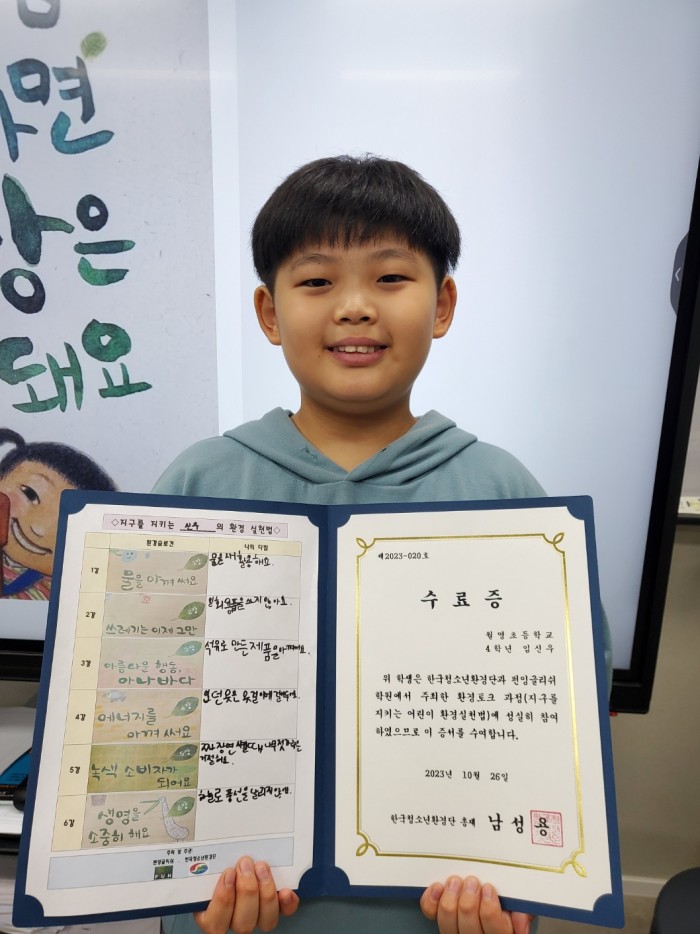 면
은
돼요
◇지구를 지키는 신우 의 환경 실천법◇
환경슬로건
나의 다짐
1강
물을 아껴 써요
물을 재활용해요.
2강
쓰레기는 이제 그만
일회용품을 쓰지 않아요.
3강
아름다운 행동,
아나바다
석유로 만든 제품을
4강
에너지를
아껴 써요
5강
녹색 소비자가
되어요
6강
생명을
소중히 해요
하늘로 풍선을 날리지 않게.
주최 및 주관
펀잉글리쉬 한국청소년환경단
FUN
제 2023-020 호
수 료 증
월영초등학교
4학년 임신우
위 학생은 한국청소년환경단과 펀잉글리쉬
학원에서 주최한 환경토크 과정(지구를
지키는 어린이 환경실천법)에 성실히 참여
하였으므로 이 증서를 수여합니다.
2023년 10월 26일
한국청소년환경단 총재 남 성 용